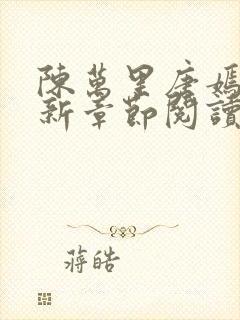 陳萬里唐嫣
新章節閱讀
蔣皓